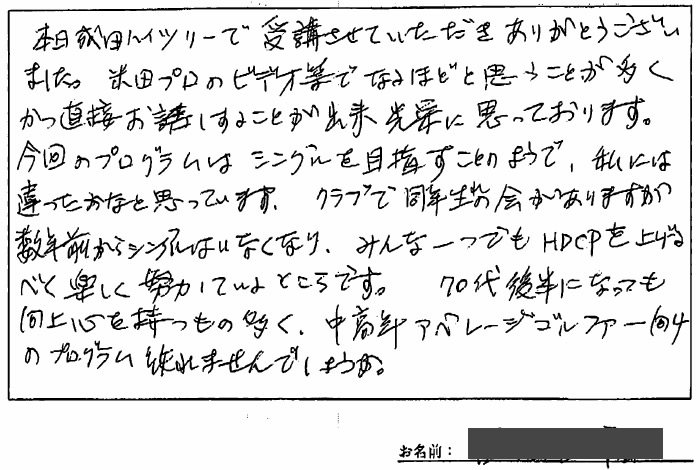 本日成田ヒルツリーで受講させていただきありがとうござい
ました。米田プロのビデオ等でなるほどと思うことが多く
かつ直接お話しすることが出来光栄に思っております。
今回のプログラムはシングルを目指すことのようで、私には
違ったかなと思っています。クラブで同年生れの会がありますが
数年前からシングルはいなくなり、みんな一つでもHDCPを上げる
べく楽しく努力しているところです。70代後半になっても
向上心を持つもの多く、中高年アベレージゴルファー向け
のプログラム作れませんでしょうか。
お名前：